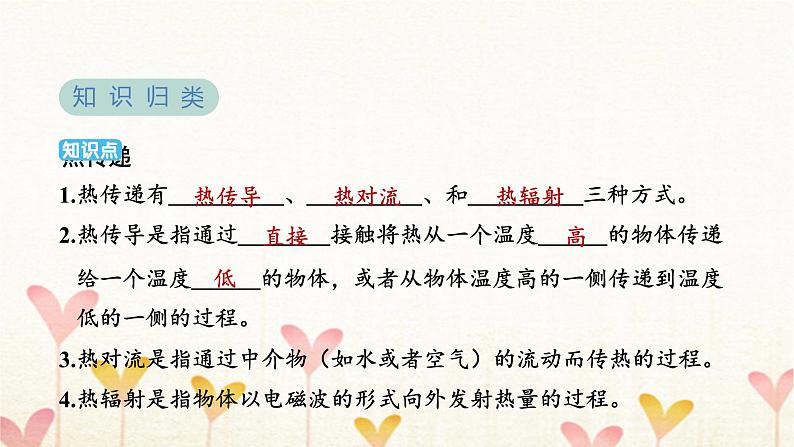 知识归类
知识点
热传递
1.热传递有热传导、热对流、和热辐射三种方式。
2.热传导是指通过直接接触将热从一个温度高的物体传递
给一个温度低的物体，或者从物体温度高的一侧传递到温度
低的一侧的过程。
3.热对流是指通过中介物（如水或者空气）的流动而传热的过程。
4.热辐射是指物体以电磁波的形式向外发射热量的过程。